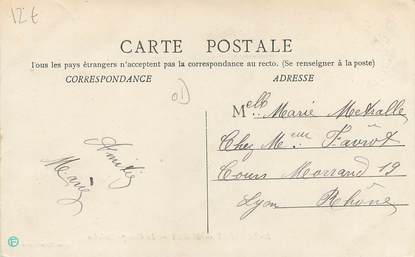 12€
CARTE POSTALE
Tous les pays étrangers n'acceptent pas la correspondance au recto. (Se renseigner à la poste)
CORRESPONDANCE
ADRESSE
Melle Marie Metralle
Chez Mme Favrot
Cours Morrand 19
Lyon Rhône
Amitiés
Marie